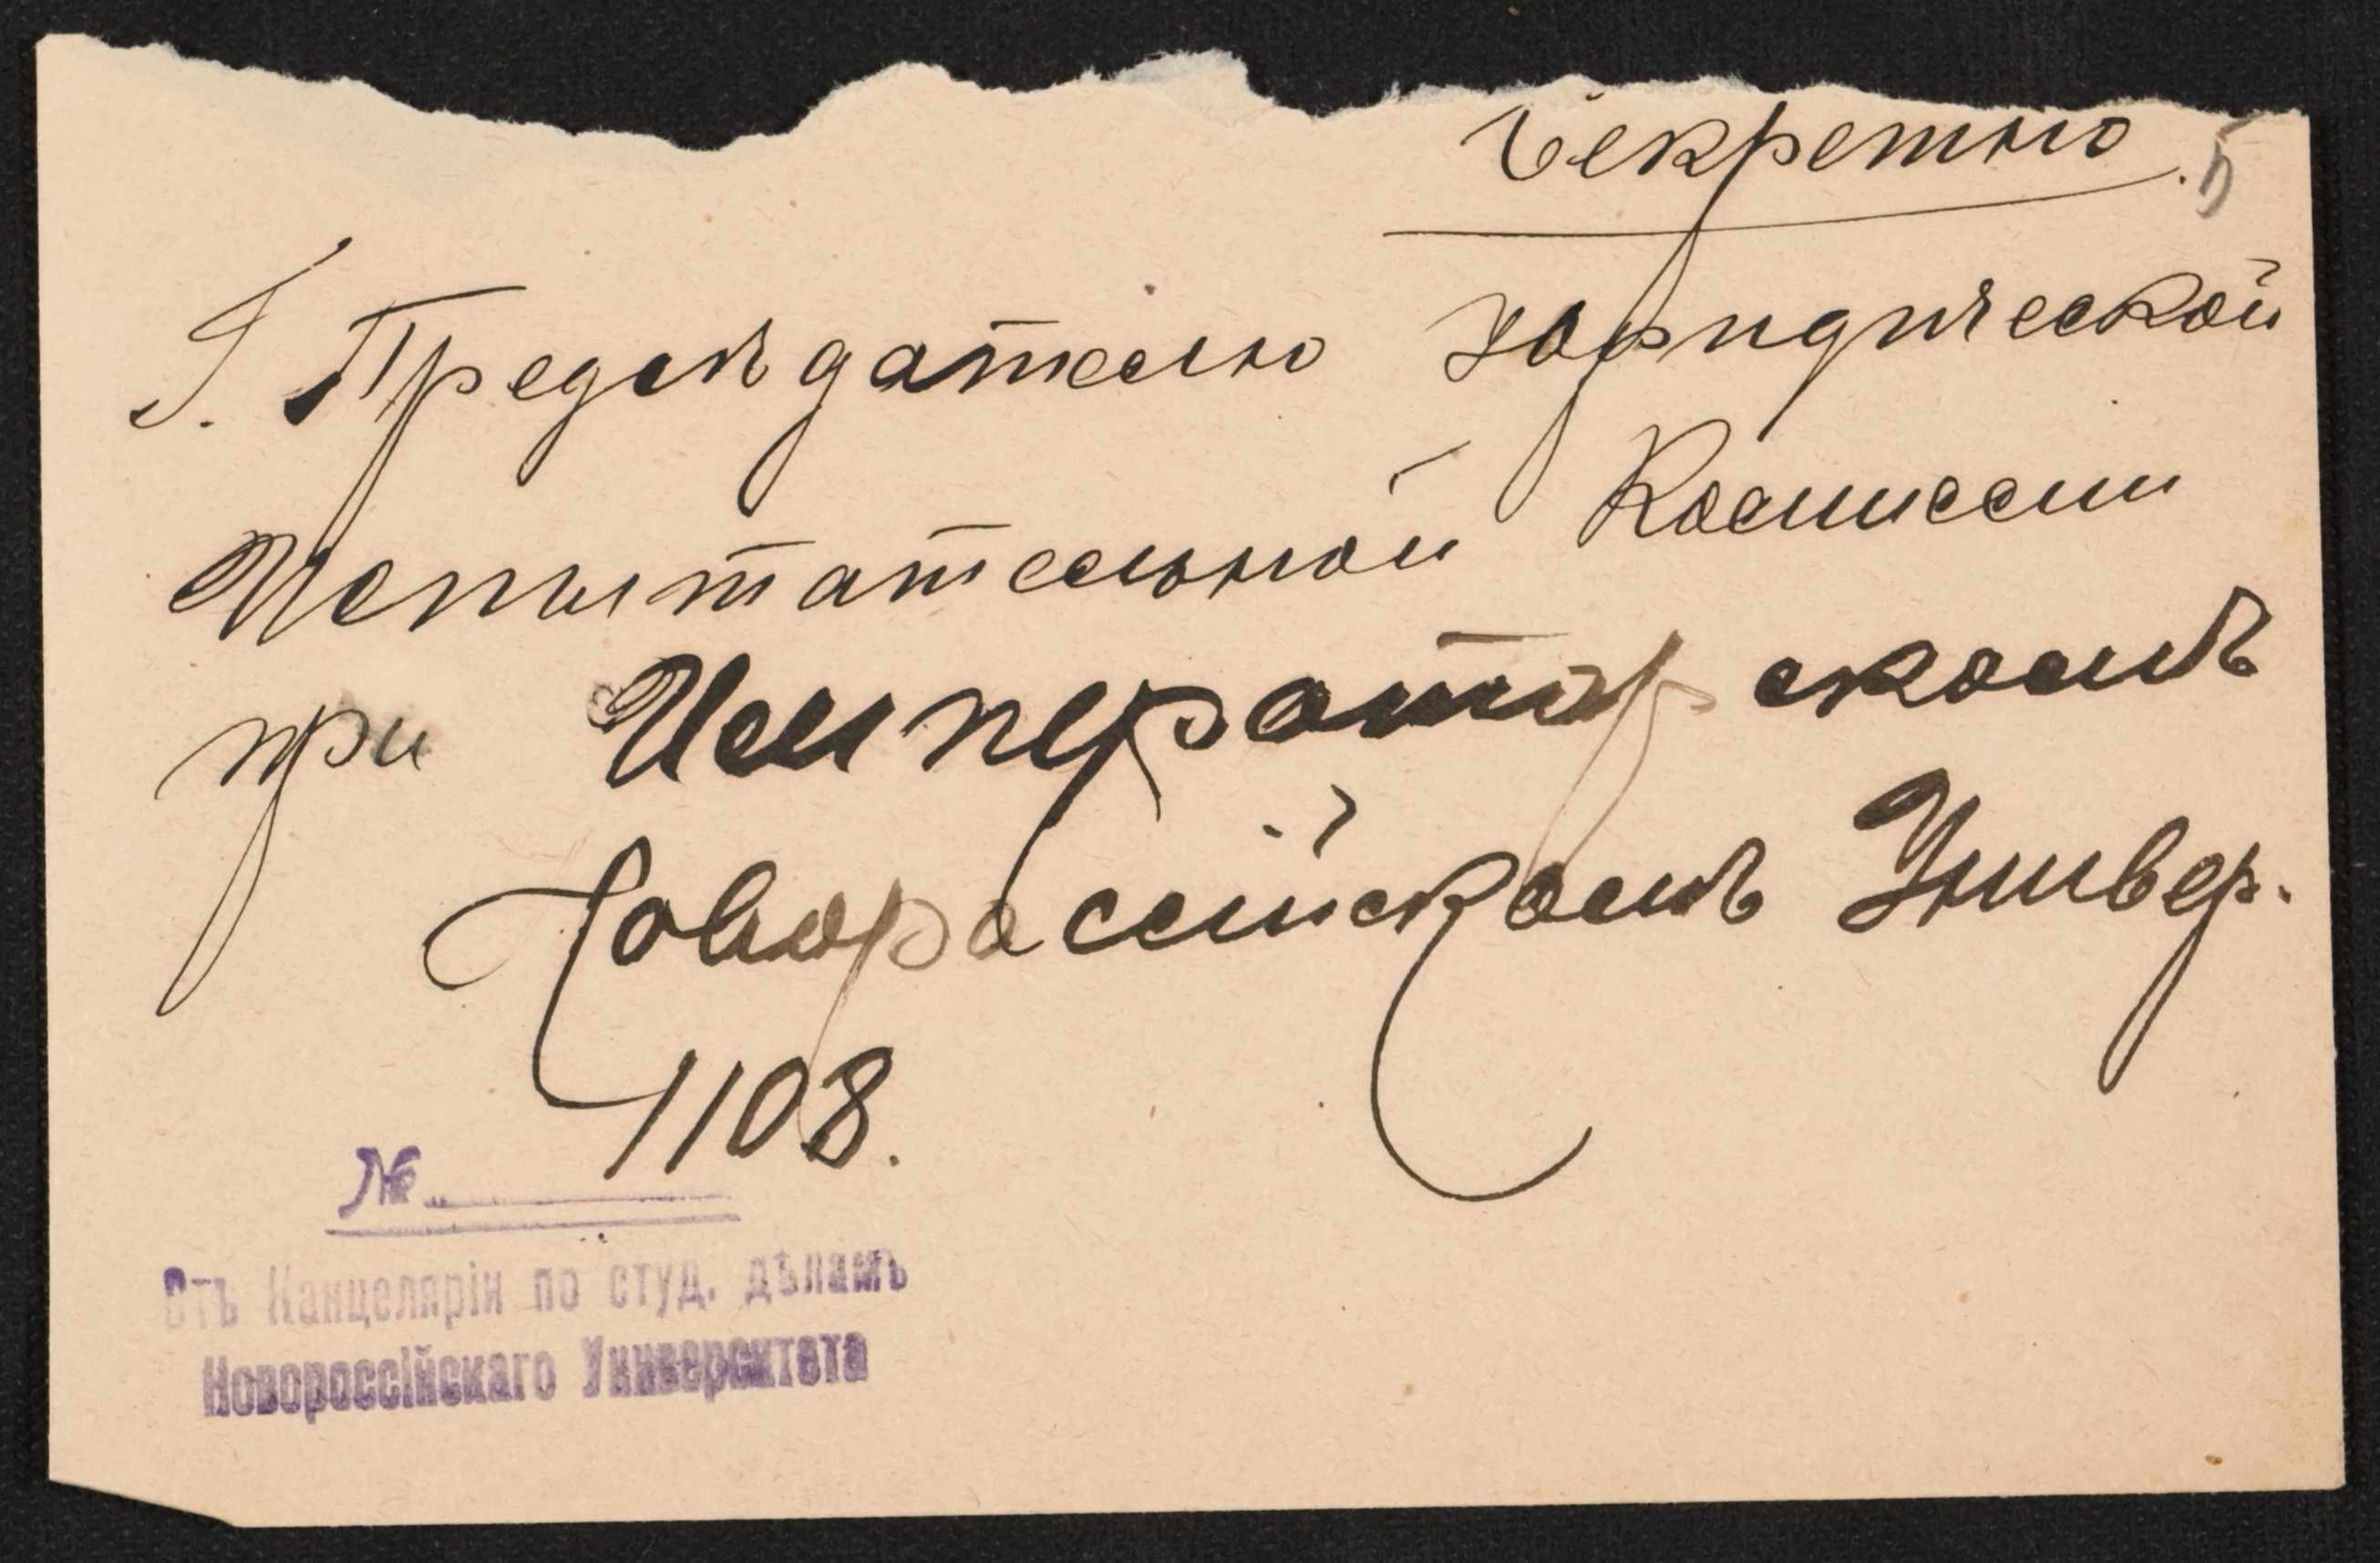 Секретно. 5
Г. Предсѣдателю Юридической
Испытательной Комиссіи
при Императорскомъ
Новороссійскомъ Универ.
1108.
№
Отъ Канцеляріи по студ. дѣламъ
Новороссійскаго Университета